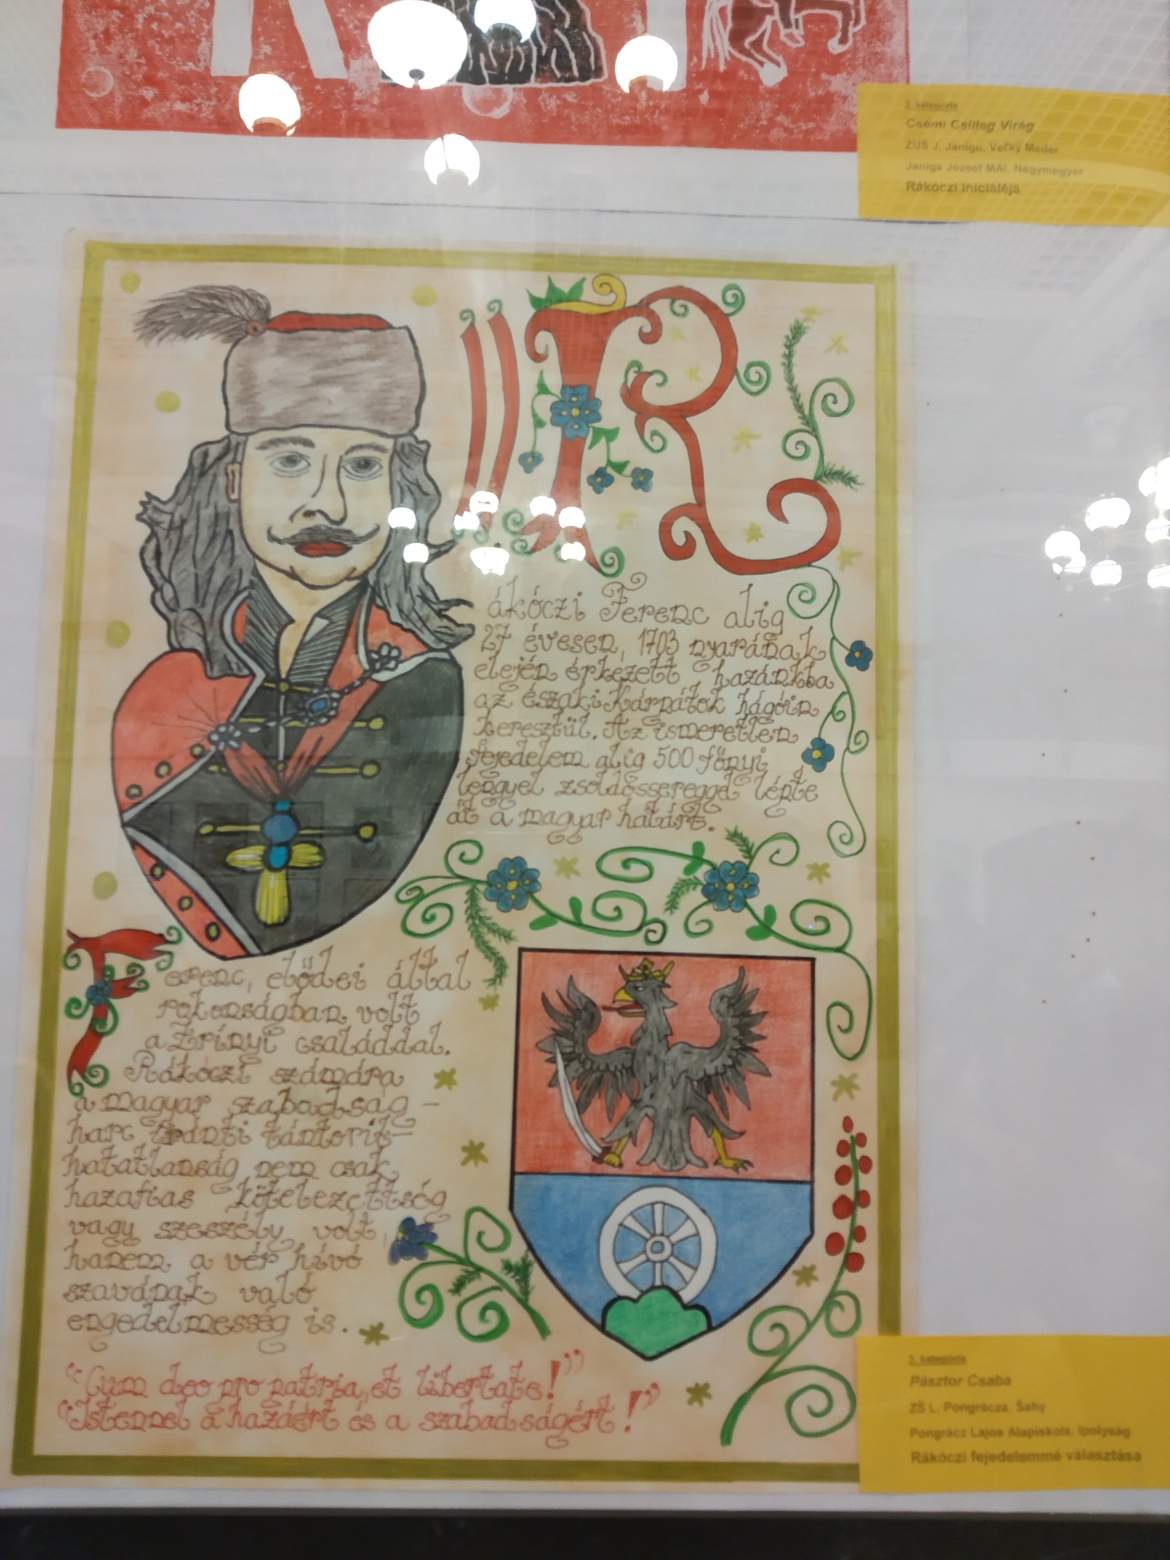 3. kategória
Csémi Csillag Virág
ZUŠ J. Janigu, Veľký Meder
Janiga József MAI, Nagymegyer
Rákóczi iniciáléja
II R
ákóczi Ferenc alig
27 évesen, 1703 nyarának
elején érkezett hazánkba
az északi Kárpátok hágóin
keresztül. Az ismeretlen
fejedelem alig 500 főnyi
lengyel zsoldossereggel lépte
át a magyar határt.
Ferenc, elődei által
rokonságban volt
a Zrínyi családdal.
Rákóczi számára
a magyar szabadság-
harc iránti tántorít-
hatatlanság nem csak
hazafias kötelezettség
vagy szeszély volt,
hanem a vér hívó
szavának való
engedelmesség is.
"Cum deo pro patria, et libertate!"
"Istennel a hazáért és a szabadságért!"
3. kategória
Pásztor Csaba
ZŠ L. Pongrácza, Šahy
Pongrácz Lajos Alapiskola, Ipolyság
Rákóczi fejedelemmé választása